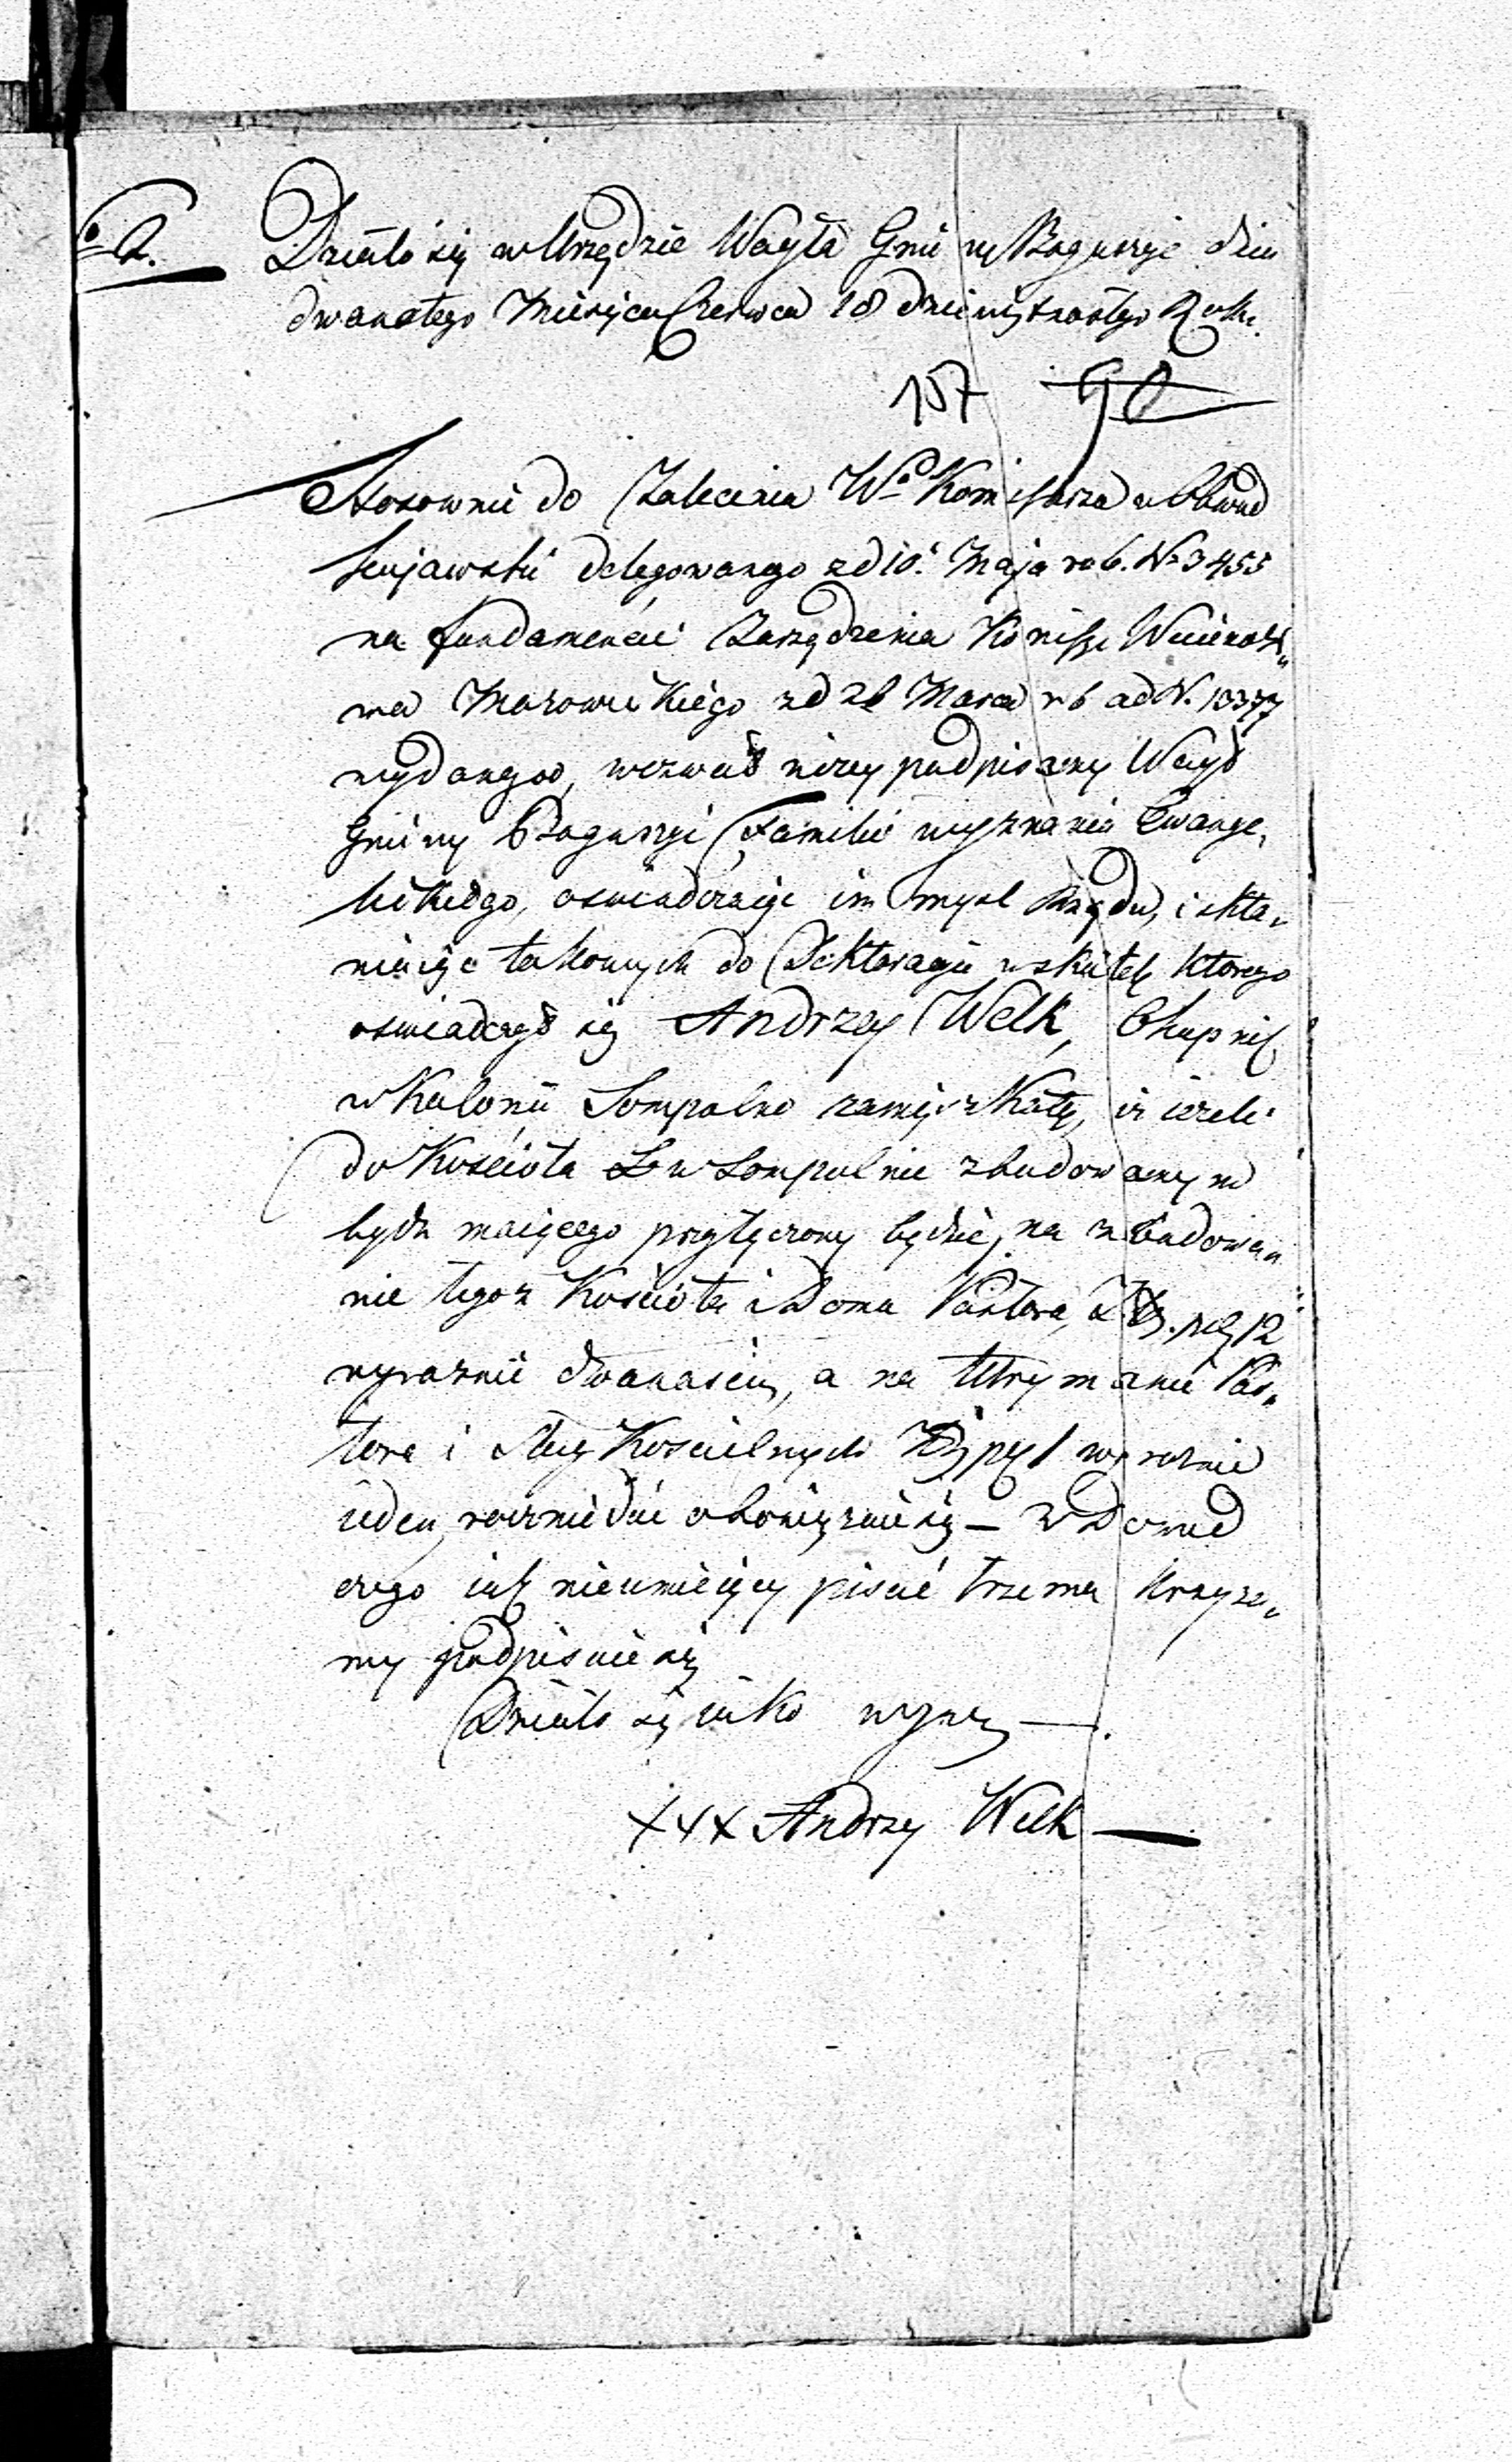 2.
Działo się w Urzędzie Wóyta Gminy Boguszyc dnia
dwunastego Miesiąca Czerwca 18 dziewiętnastego Roku.
157 90
Stosownie do Zalecenia Wo Komissarza w Obwód
kujawski delegowanego z d 10. Maja r. b. No 3455
na fundamencie Zarządzenia Komissyi Wojewódz„
wa Mazowieckiego z d 26 Marca r b ad N. 13377
wydanego, wezwał niżey podpisany Wóyt
Gminy Boguszyc Familie wyznania Ewange„
lickiego, oświadczając im myśl Rządu, i skła„
niaiąc takowych do Deklaracyi wskutek którego
oświadczył się Andrzey Welk, Okupnik
w Kolonii Sompolno zamieszkały, iż ieżeli
do Kościoła w Sompolnie zbudowanym
bydz maiącego przyłączony będzie, na zbudowa„
nie tegoż Kościoła i Domu Pastora, 12
wyraźnie dwanaście, a na utrzymanie Pas„
tora i Sług Kościelnych 1 wyraźnie
ieden, rocznie dać obowięzuie się — w Dowód
czego iak nieumieiący pisać trzema krzyża„
my podpisuie się
Działo się iako wyżey —.
XXX Andrzey Welk —